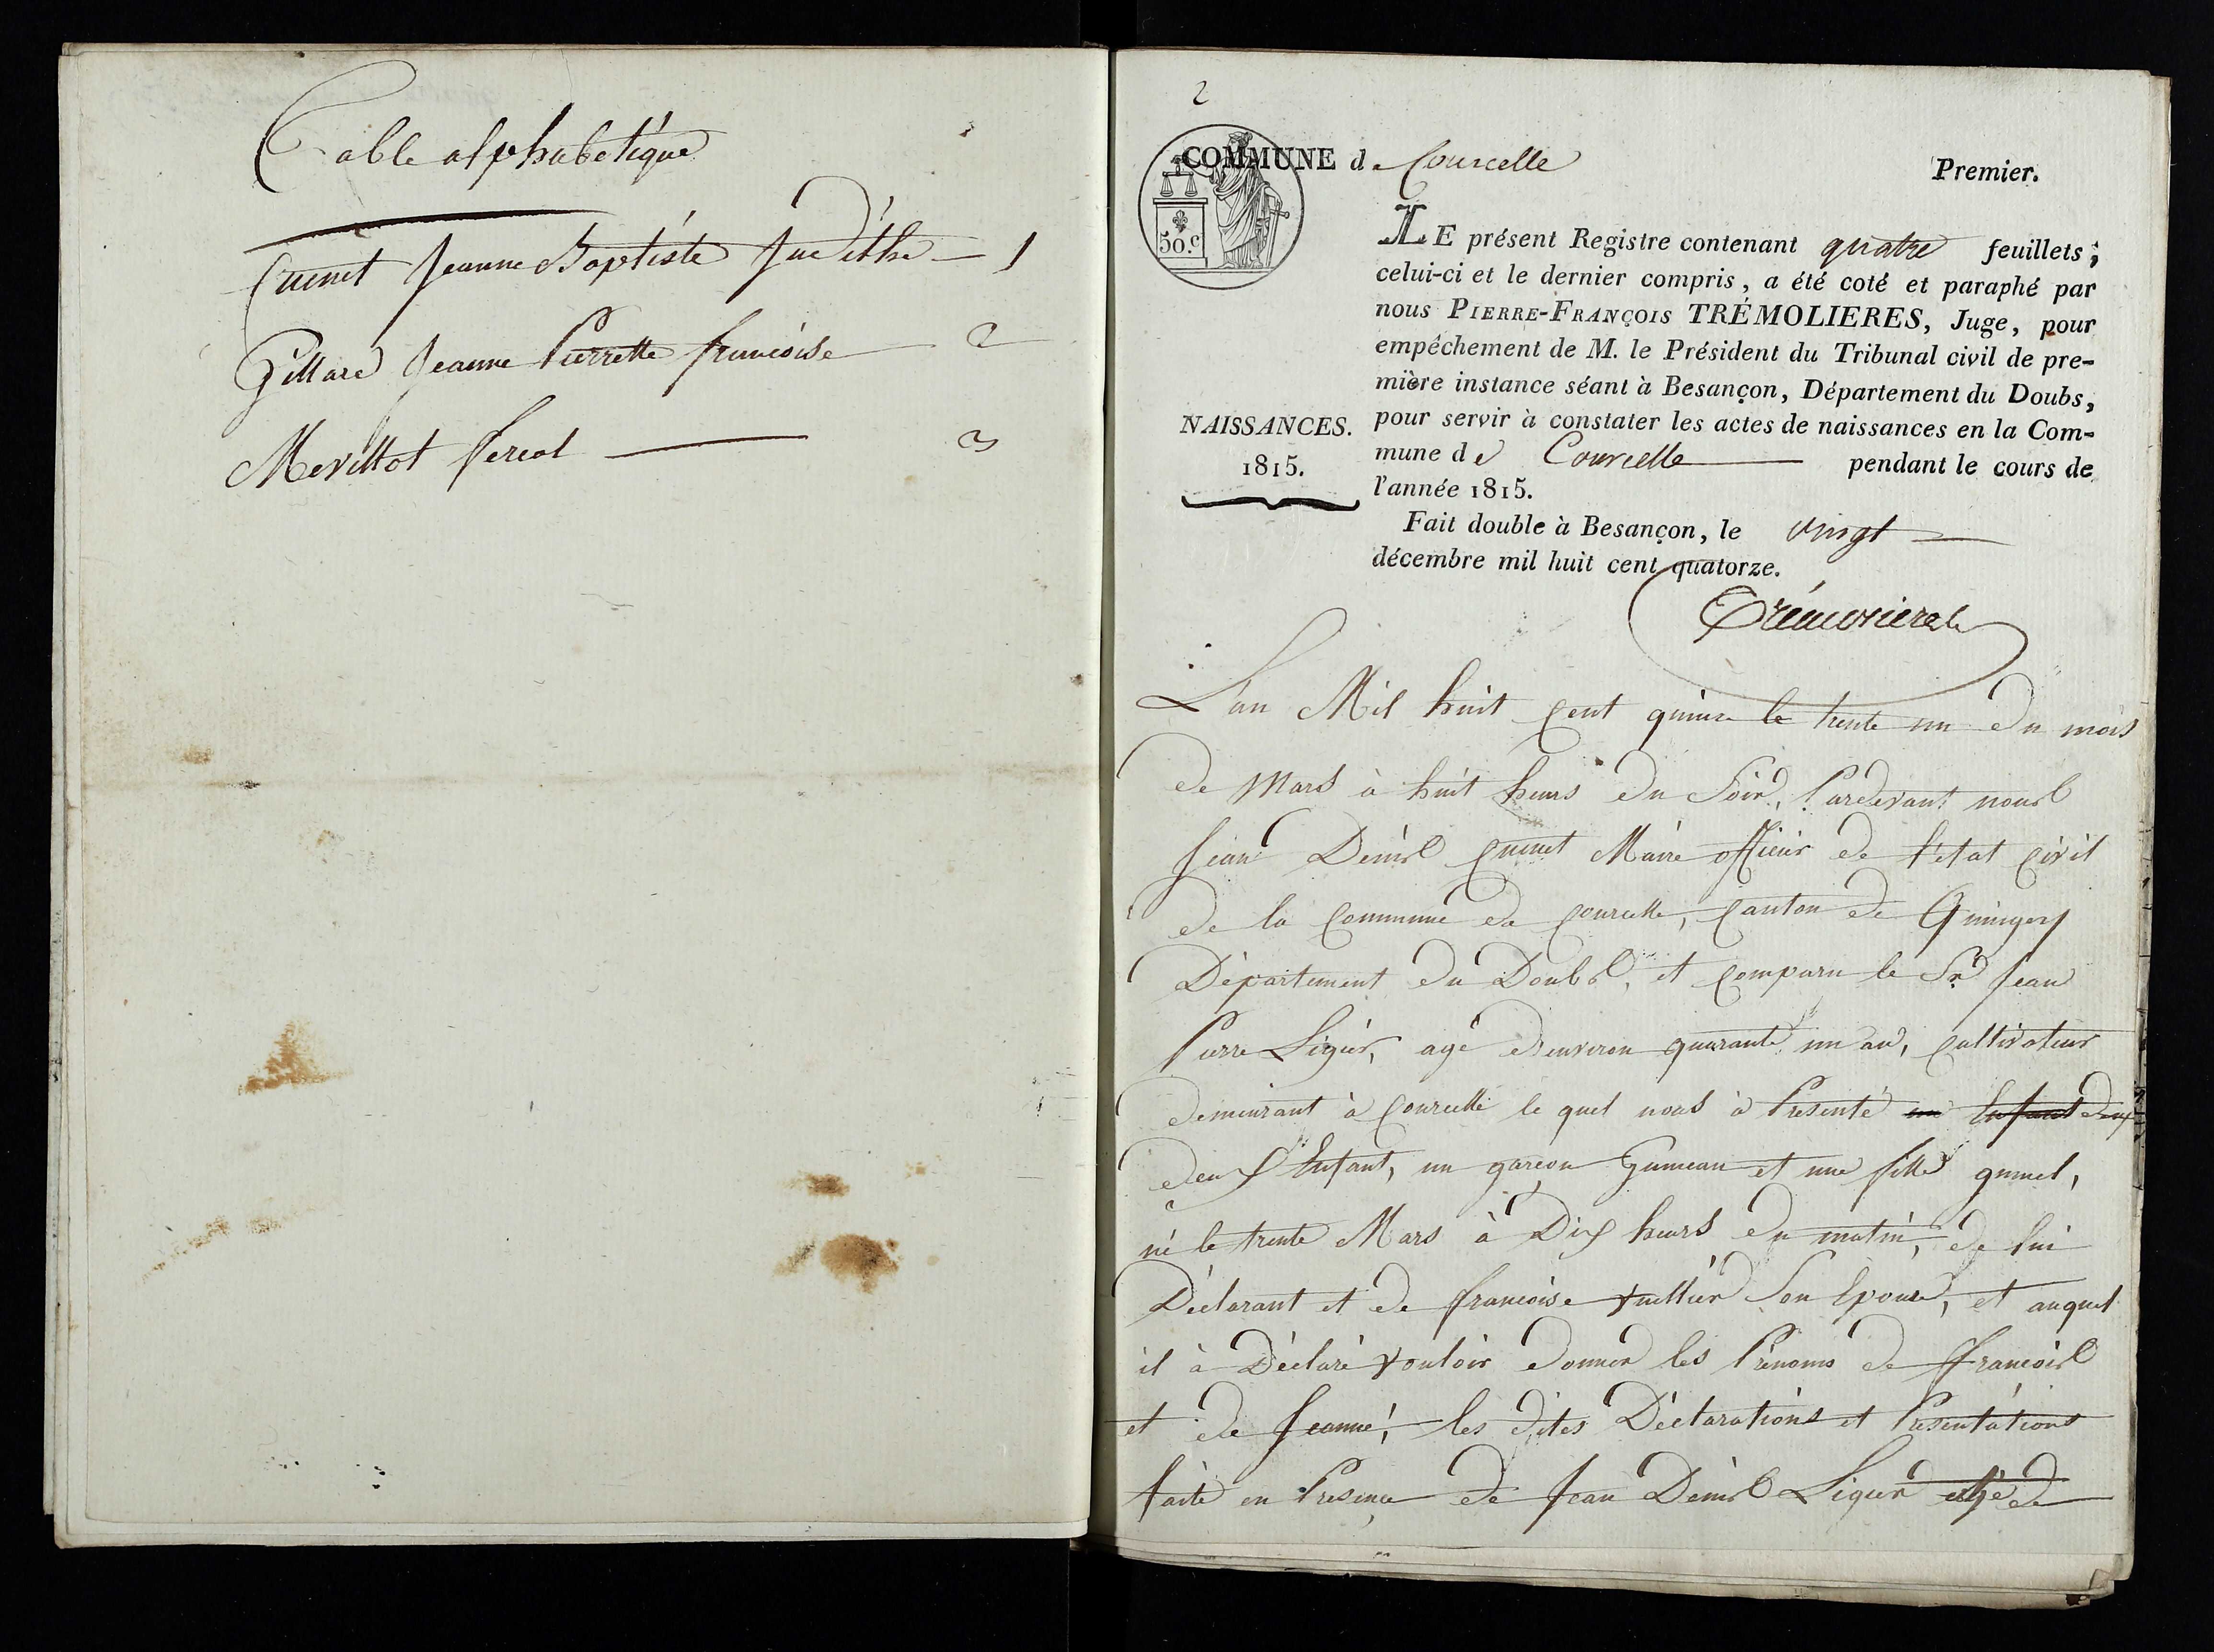 Table alphabétique
Cuenet Jeanne Baptiste Judithe — 1
Gillard Jeanne Pierrette francoise — 2
Mevillot fereol — 3
2
COMMUNE de Courcelle
Premier.
LE présent Registre contenant quatre feuillets;
celui-ci et le dernier compris, a été coté et paraphé par
nous PIERRE-FRANÇOIS TRÉMOLIERES, Juge, pour
empêchement de M. le Président du Tribunal civil de pre-
mière instance séant à Besançon, Département du Doubs,
pour servir à constater les actes de naissances en la Com-
mune de Courcelle pendant le cours de
l'année 1815.
50.c
NAISSANCES.
1815.
Fait double à Besançon, le vingt
décembre mil huit cent quatorze.
Trémolieres
L'an Mil huit cent quinze le trente un du mois
de Mars à huit heurs du Soir, Pardevant nous
Jean Denis Cuenet Maire officier de l'etat civil
de la Commune de Courcelle, canton de Quingey
Département du Doubs, et comparu le Sr Jean
Pierre Ligier, agé d'environ quarante un an, cultivateur
demeurant à Courcelle le quel nous à Présenté un Enfant deux
deux Enfant, un garçon Gumeau et une fille gumel,
né le trente Mars à Dix heurs du matin, de lui
Déclarant et de francoise Vuillier Son Epouse, et auquel
il à Déclaré vouloir donner les Prénoms de francois
et de Jeanne, les dites Déclarations et Présentations
faite en Présence de Jean Denis Ligier agé de